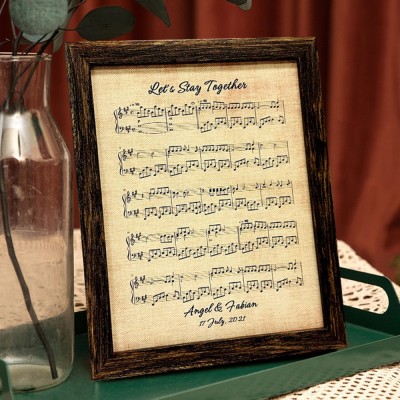 Let's Stay Together
Angel & Fabian
17 July, 2021